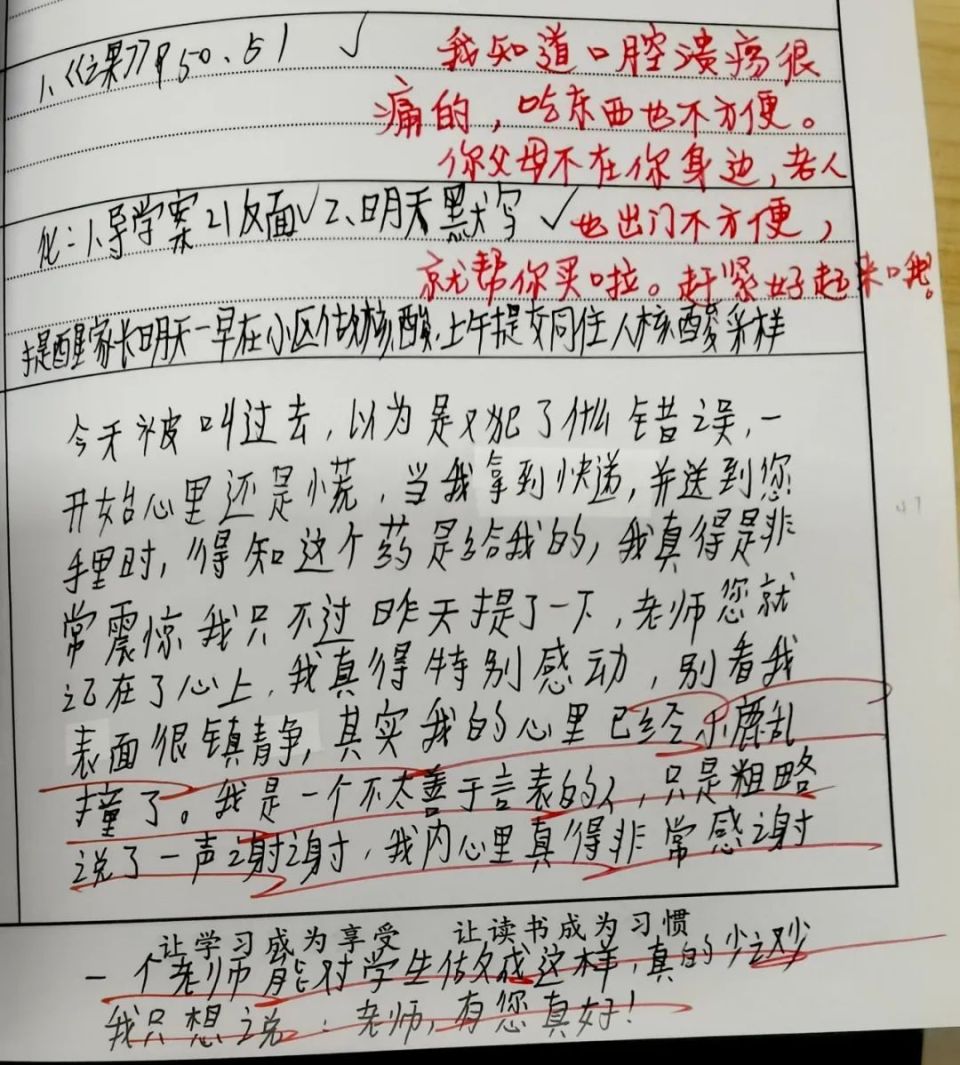 1、《课》P50、51 ✓
我知道口腔溃疡很
痛的，吃东西也不方便。
你父母不在你身边，老人
化：1、导学案21反面✓ 2、明天默写 ✓
也出门不方便，
就帮你买啦。赶紧好起来哦。
提醒家长明天一早在小区做核酸，上午提交同住人核酸采样
今天被叫过去，以为是又犯了什么错误，一
开始心里还是慌，当我拿到快递，并送到您
手里时，得知这个药是给我的，我真得是非
常震惊我只不过昨天提了一下，老师您就
记在了心上，我真得特别感动，别看我
表面很镇静，其实我的心里已经小鹿乱
撞了。我是一个不太善于言表的人，只是粗略
说了一声谢谢，我内心里真得非常感谢
让学习成为享受 让读书成为习惯
一个老师能对学生做成这样，真的少之又少
我只想说：老师，有您真好！